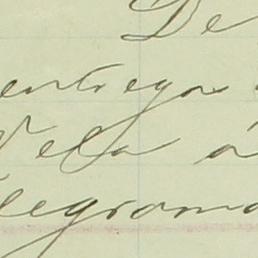 De
entrega
Vela á
elegrama